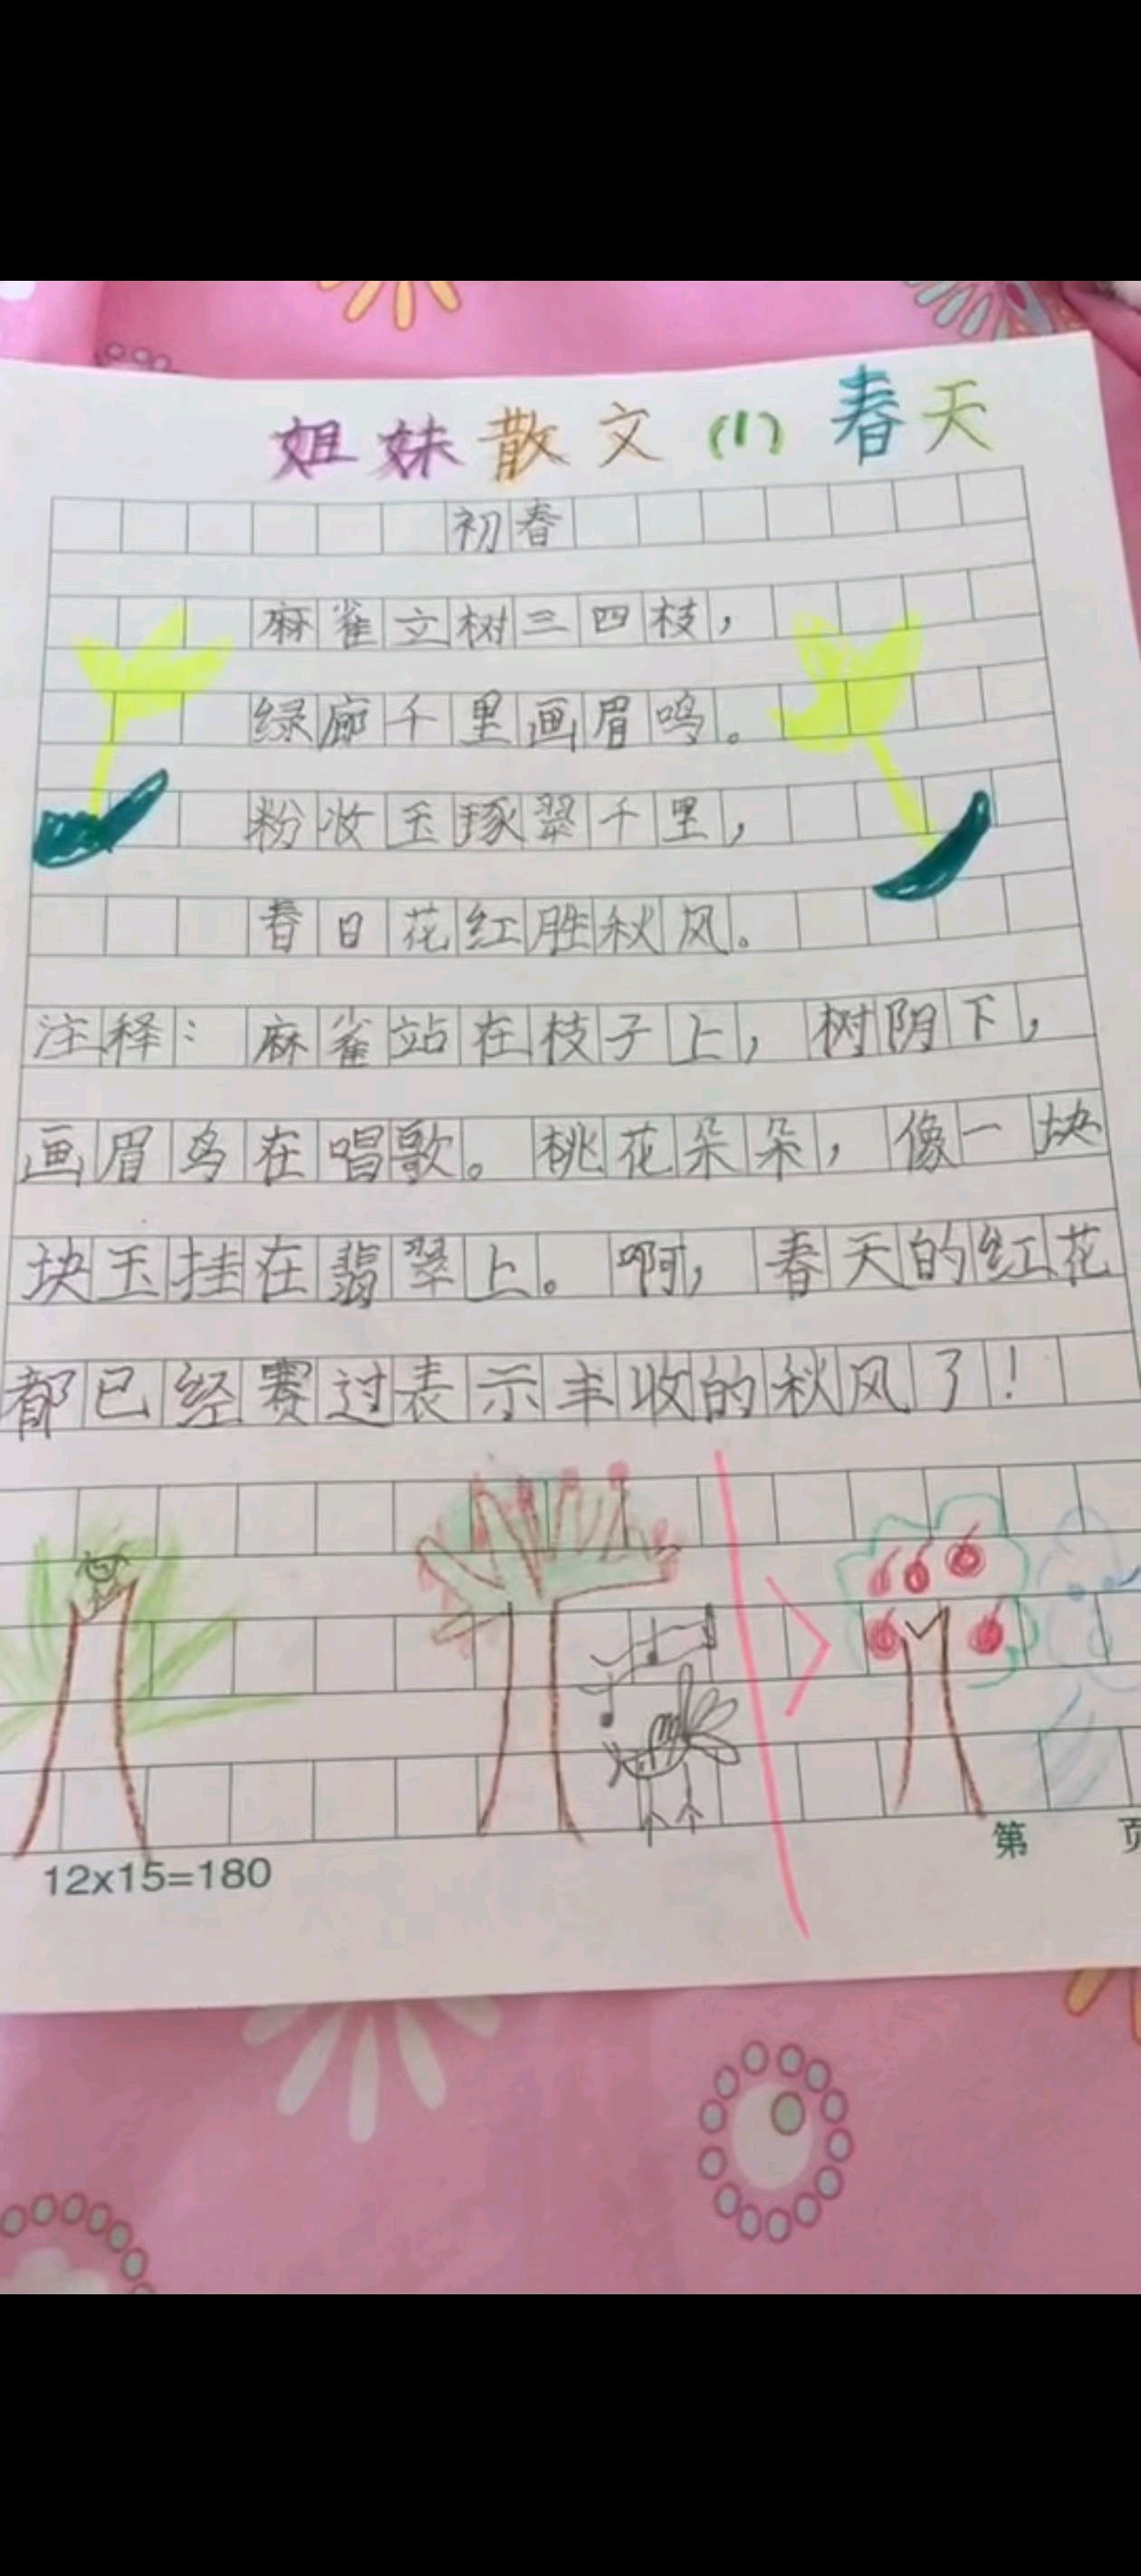 姐妹散文(1)春天
初春
麻雀立树三四枝，
绿廊千里画眉鸣。
粉妆玉琢翠千里，
春日花红胜秋风。
注释：麻雀站在枝子上，树阴下，
画眉鸟在唱歌。桃花朵朵，像一块
块玉挂在翡翠上。啊，春天的红花
都已经赛过表示丰收的秋风了！
12x15=180
第 页